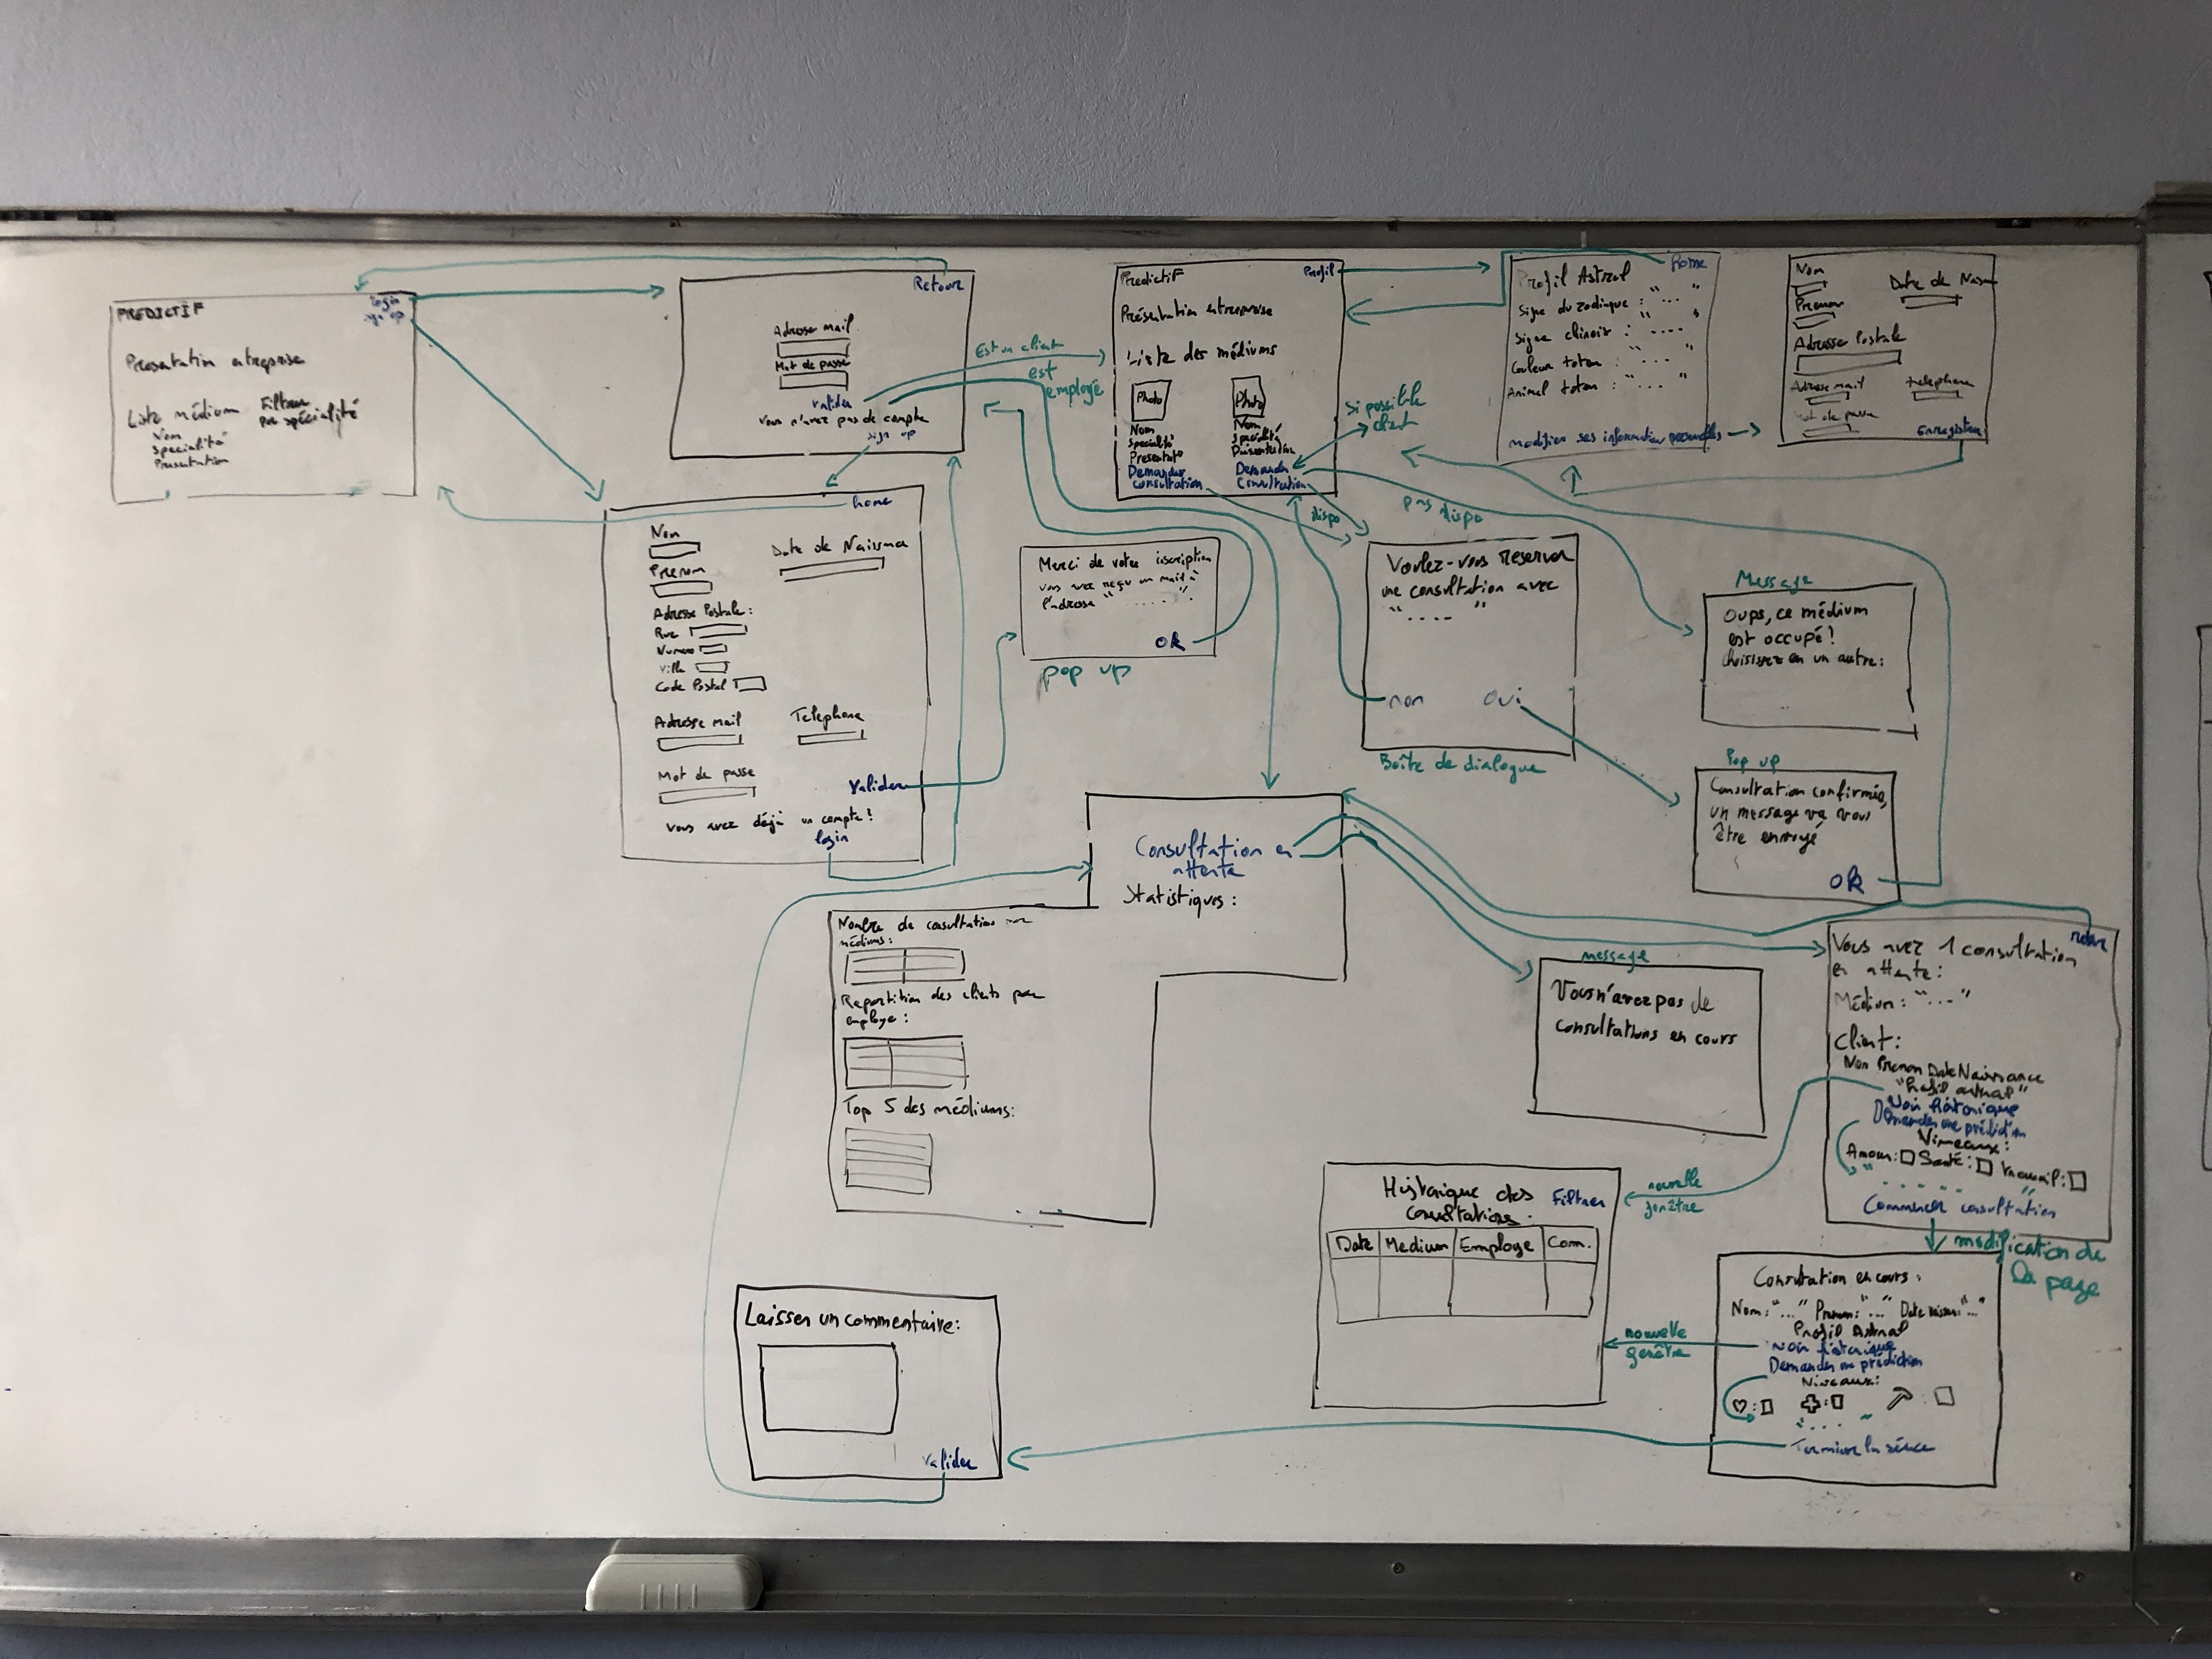 PREDICTIF
login
sign up
Presentation entreprise
Liste médium
Filtrer
par spécialité
Nom
specialité
Presentation
Retour
Adresse mail
Mot de passe
valider
Vous n'avez pas de compte
sign up
Est un client
est
employé
Predictif
Profil
Présentation entreprise
Liste des médiums
Photo
Photo
Nom
specialité
Presentat°
Demander
consultation
Nom
specialité
Présentation
Demander
Consultation
Si possible
client
dispo
pas dispo
Profil Astral
Home
Signe du zodiaque : "..."
Signe chinois : "...."
Couleur totem : "...."
Animal totem : "...."
Modifier ses information personnelles
Nom
Date de Naiss
Prenom
Adresse Postale
Adresse mail
telephone
Mot de passe
Enregistrer
home
Nom
Date de Naissance
Prenom
Adresse Postale :
Rue
Numero
Ville
Code Postal
Adresse mail
Telephone
Mot de passe
Valider
Vous avez déjà un compte !
login
Merci de votre inscription
vous avez reçu un mail à
l'adresse "......".
ok
pop up
Voulez-vous reserver
une consultation avec
"...."
non
oui
Boîte de dialogue
Message
Oups, ce médium
est occupé !
choisissez en un autre :
Pop up
Consultation confirmée,
un message va vous
être envoyé
ok
Consultation en
attente
Statistiques :
Nombre de consultation par
médiums :
Repartition des clients par
employe :
Top 5 des médiums :
message
Vous n'avez pas de
consultations en cours
retour
Vous avez 1 consultation
en attente :
Médium : "..."
Client :
Nom Prenom Date Naissance
"Profil astral"
Voir historique
Demander une prédiction
Niveaux :
Amour : Santé : travail :
Commencer consultation
modification de
la page
nouvelle
fenêtre
Historique des
consultations.
Filtrer
Date Medium Employe Com.
nouvelle
fenêtre
Consultation en cours :
Nom : "..." Prenom : "..." Date naiss : "..."
Profil Astral
Voir historique
Demander une prédiction
Niveaux :
Terminer la séance
Laisser un commentaire :
Valider